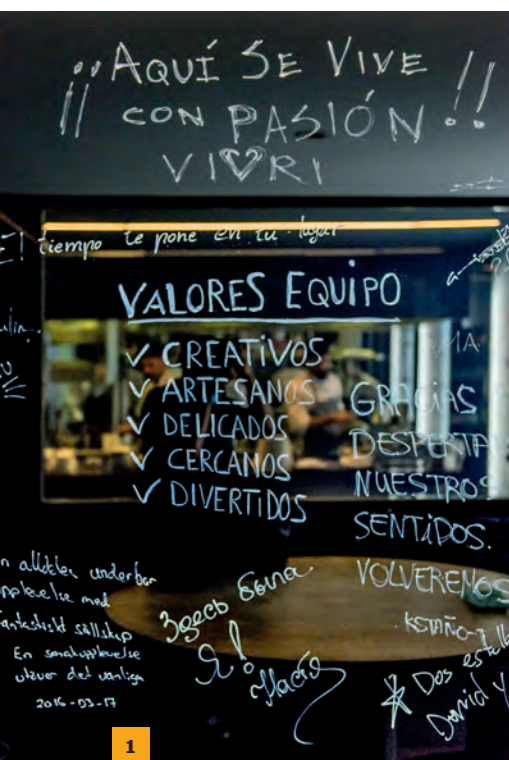 ¡¡AQUÍ SE VIVE
CON PASIÓN!!
VIVRI
El tiempo te pone en tu lugar
VALORES EQUIPO
✓ CREATIVOS
✓ ARTESANOS
✓ DELICADOS
✓ CERCANOS
✓ DIVERTIDOS
GRACIAS
DESPERTA
NUESTROS
SENTIDOS.
VOLVEREMOS
En alldeles underbar
upplevelse med
fantastiskt sällskap
En smakupplevelse
utöver det vanliga
2016-03-17
Здесь была
Я!
Настя
Dos
David Y
1